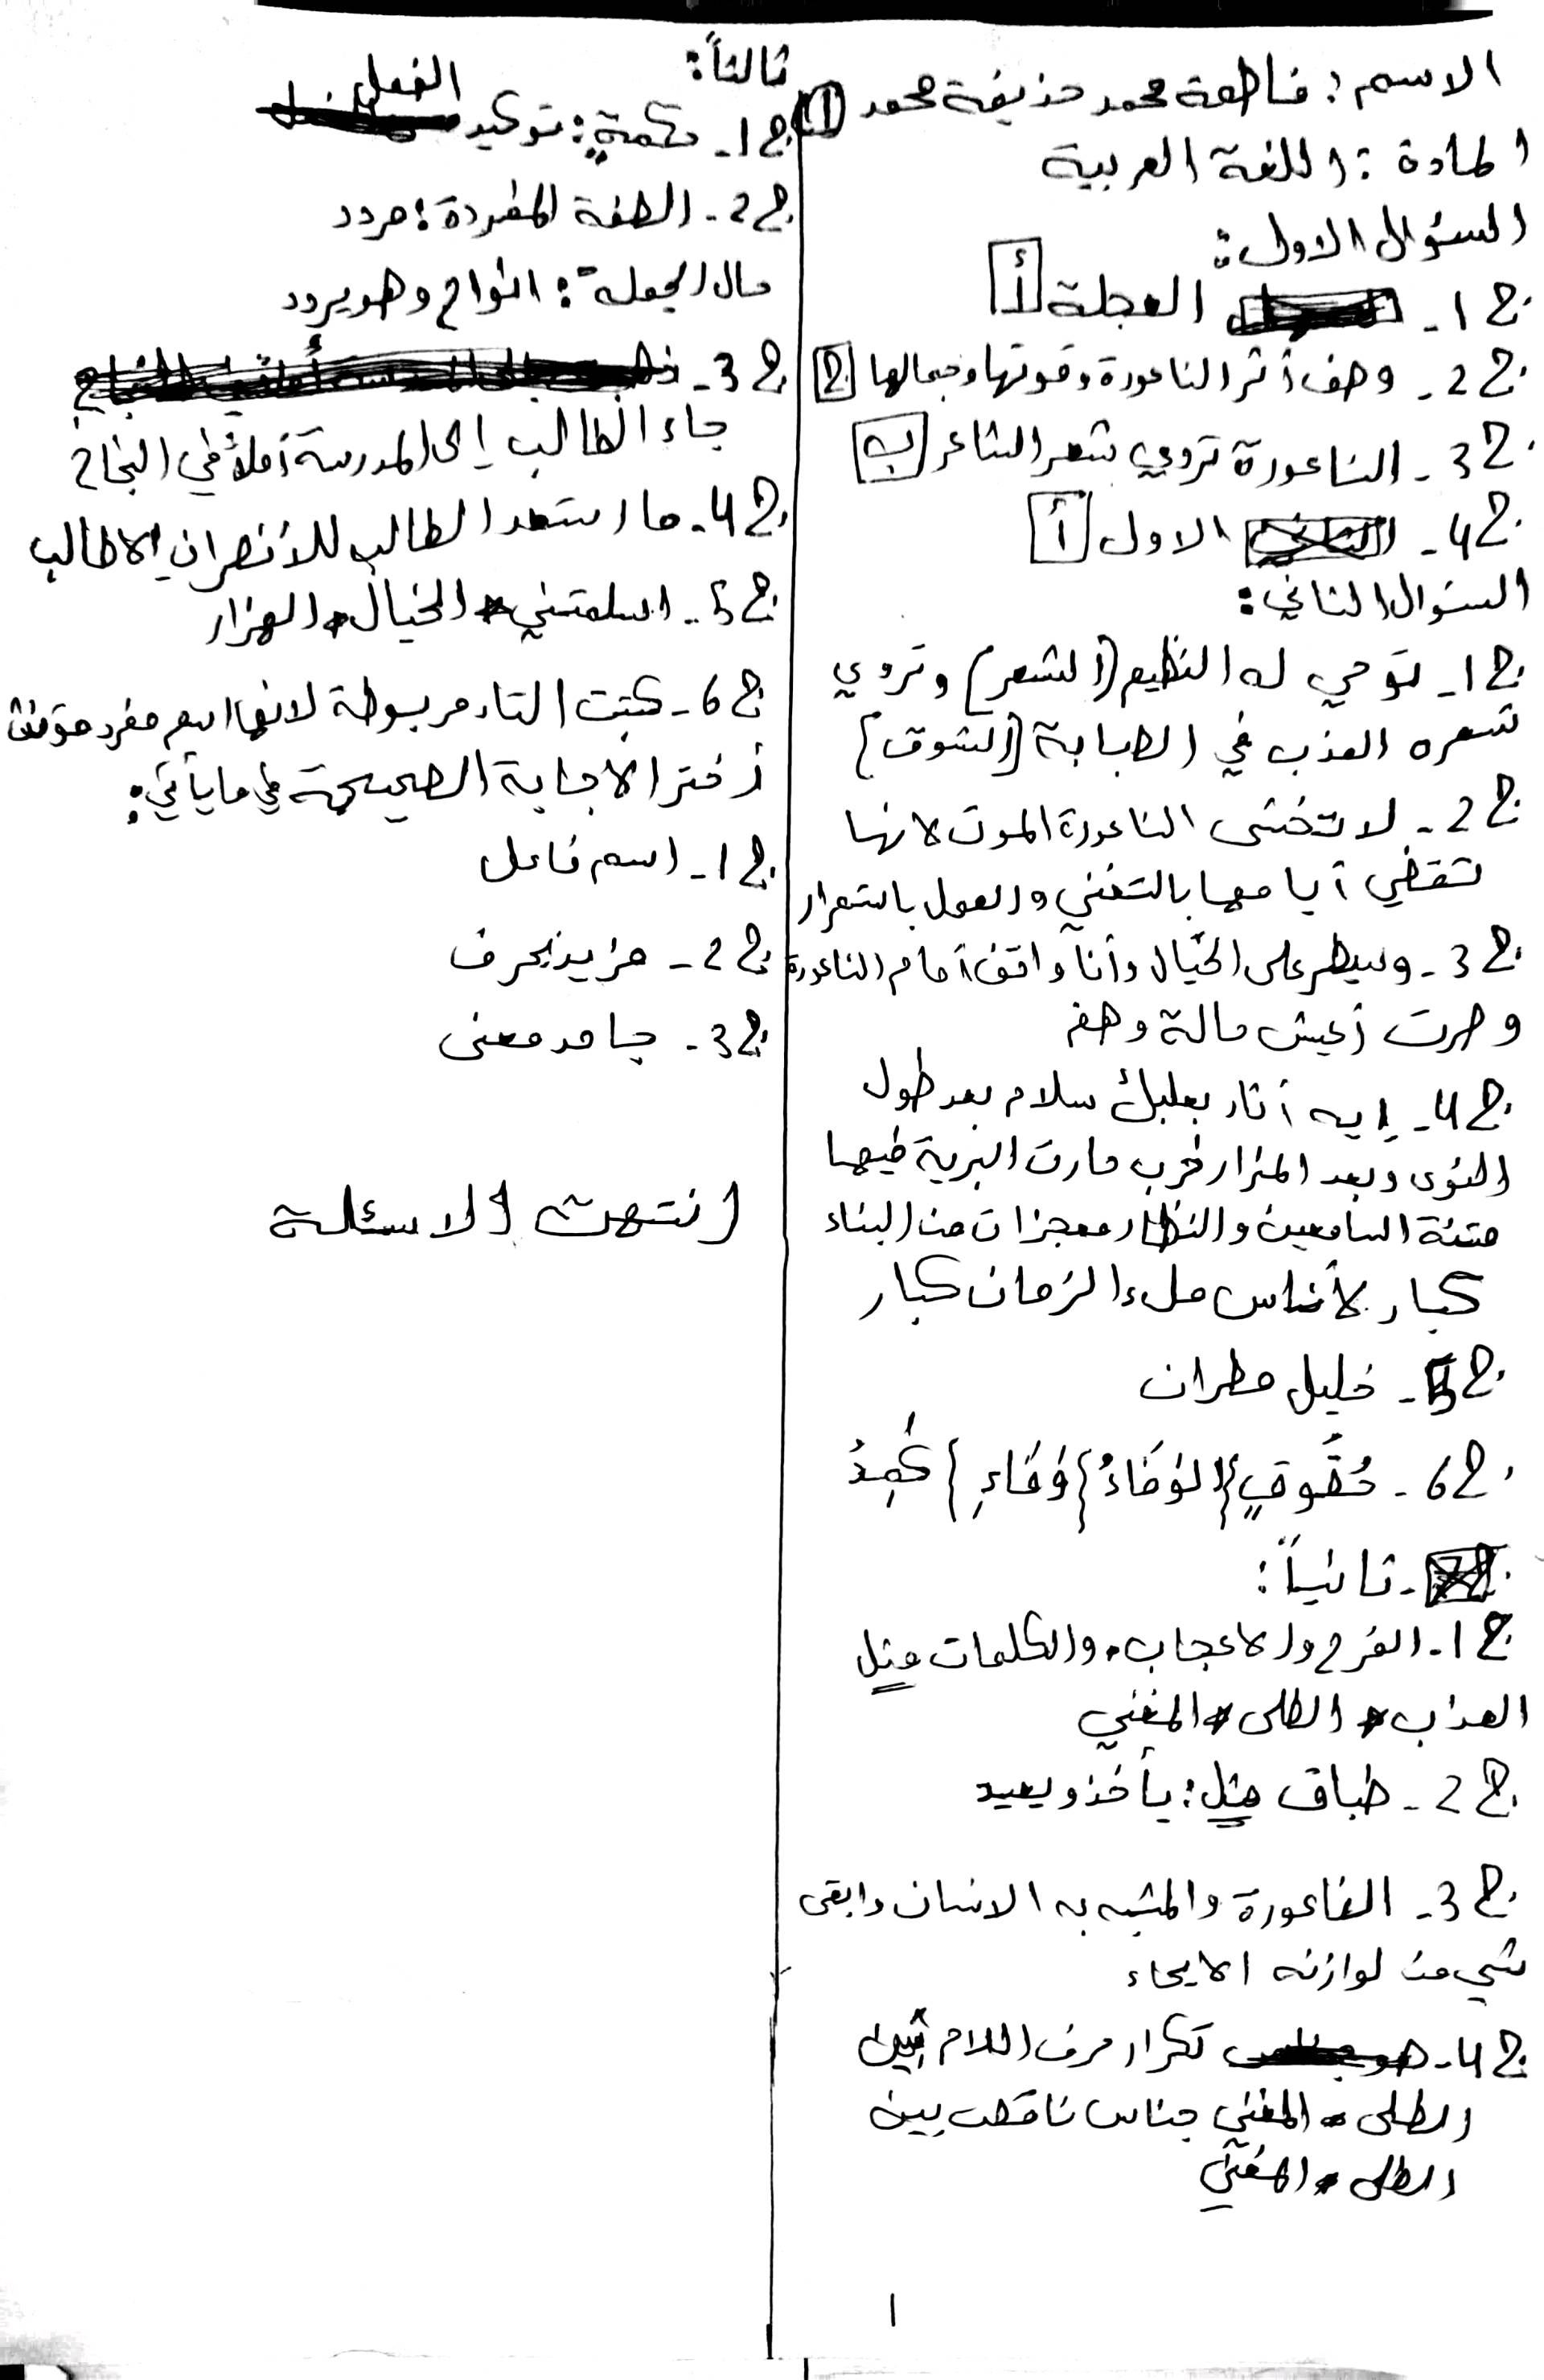 الاسم : فاطمة محمد حذيفة محمد 1
المادة : اللغة العربية
السؤال الاول :
ج1- العجلة أ
ج2- وصف أثر الناعورة وقوتها وجمالها ج
ج3- الناعورة تروي شعر الشاعر ب
ج4- الاول أ
السؤال الثاني :
ج1- توحي له النظيم (الشعر) وتروي
شعره العذب في الصبابة (الشوق)
ج2- لا تخشى الناعورة الموت لانها
تقضي أيامها بالتغني والعمل باستمرار
ج3- وسيطر على الخيال وأنا واقف أمام الناعورة
وصرت أعيش حالة وصفه
ج4- إيه آثار بعلبك سلام بعد طول
النوى وبعد المزار خرب حارت البرية فيها
فتنة السامعين والنظار معجزات من البناء
كبار لأناس ملء الزمان كبار
ج5- خليل مطران
ج6- حُقُوقٍ} الوَفَاءُ} وَفَاءِ} كَمِدُ
ثانياً :
ج1- الفرح والاعجاب، والكلمات مثل
العذاب، الطلى، المغني
ج2- طباق مثل : يأخذ ويعيد
ج3- الناعورة والمشبه به الانسان وابقى
شي من لوازنه الايحاء
ج4- تكرار حرف اللام بين
الطلى، المغني جناس ناقص بين
الطلى، المغني
1
ثالثاً :
ج1- توكيد الفعل
ج2- الصفة المفردة : مردد
حال الجملة : النواح وهو يردد
ج3-
جاء الطالب إلى المدرسة أملاً في النجاح
ج4- ما استعد الطالب للأنصراف الا طالب
ج5- اسلمتني، الخيال، الهزار
ج6- كتبت التاء مربوطة لانها اسم مفرد مؤنث
أختر الأجابة الصحيحة في ما يأتي :
ج1- اسم فاعل
ج2- مزيد بحرف
ج3- جامد معنى
انتهت الاسئلة